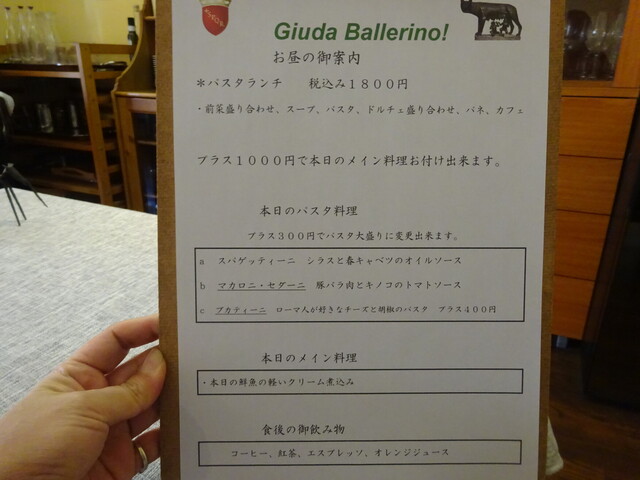 Giuda Ballerino!
お昼の御案内
＊パスタランチ　　税込み１８００円
・前菜盛り合わせ、スープ、パスタ、ドルチェ盛り合わせ、パネ、カフェ
プラス１０００円で本日のメイン料理お付け出来ます。
本日のパスタ料理
プラス３００円でパスタ大盛りに変更出来ます。
a　スパゲッティーニ　シラスと春キャベツのオイルソース
b　マカロニ・セダーニ　豚バラ肉とキノコのトマトソース
c　ブカティーニ　ローマ人が好きなチーズと胡椒のパスタ　プラス４００円
本日のメイン料理
・本日の鮮魚の軽いクリーム煮込み
食後の御飲み物
コーヒー、紅茶、エスプレッソ、オレンジジュース